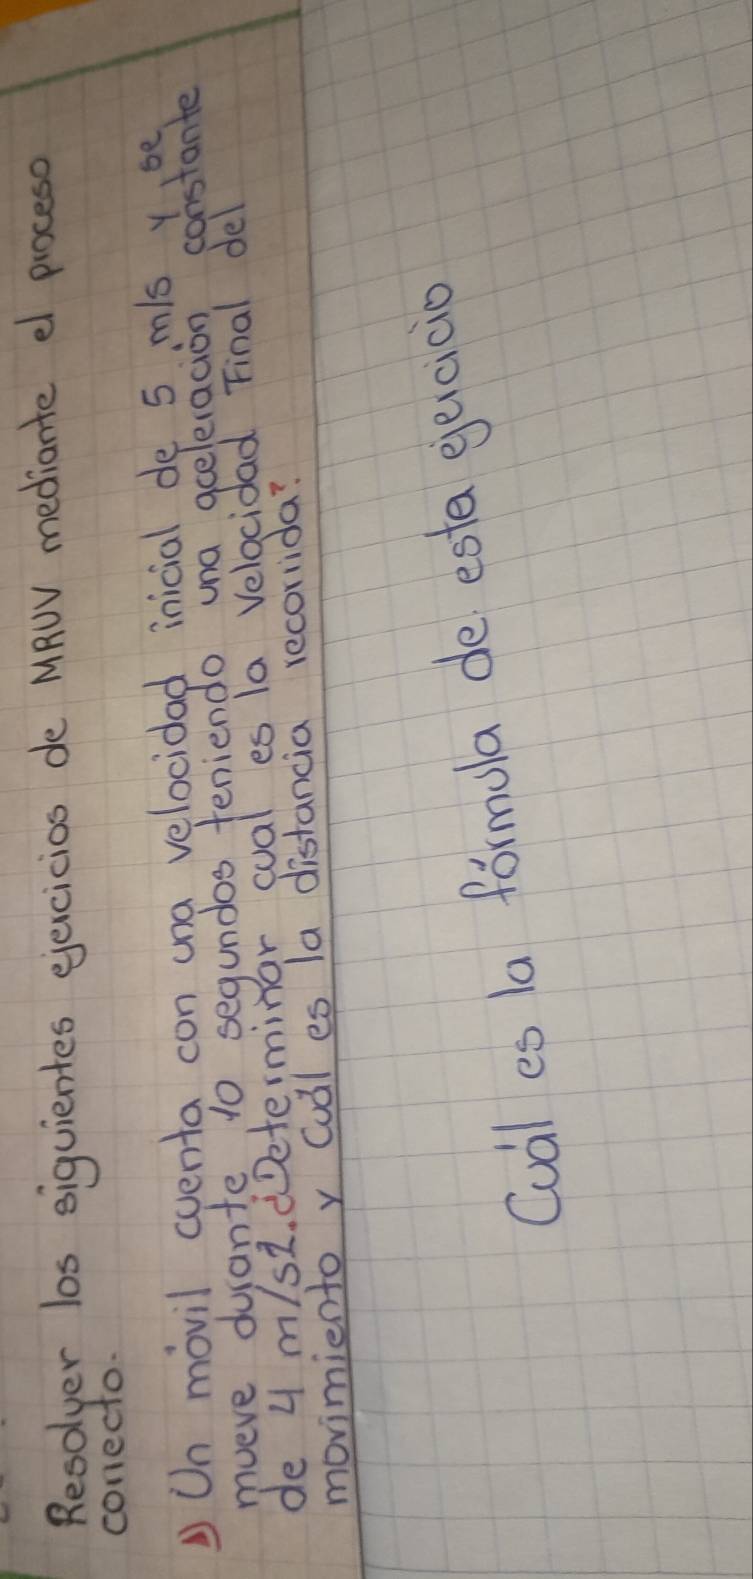 Resolver los siguientes ejercicios de MRUV mediante el proceso
correcto.
1) Un móvil cuenta con una velocidad inicial de 5 m/s y se
mueve durante 10 segundos teniendo una aceleración constante
de 4 m/s2. ¿Determinar cual es la velocidad Final del
movimiento y cuál es la distancia recorrida?
Cuál es la fórmula de esta ejercicio